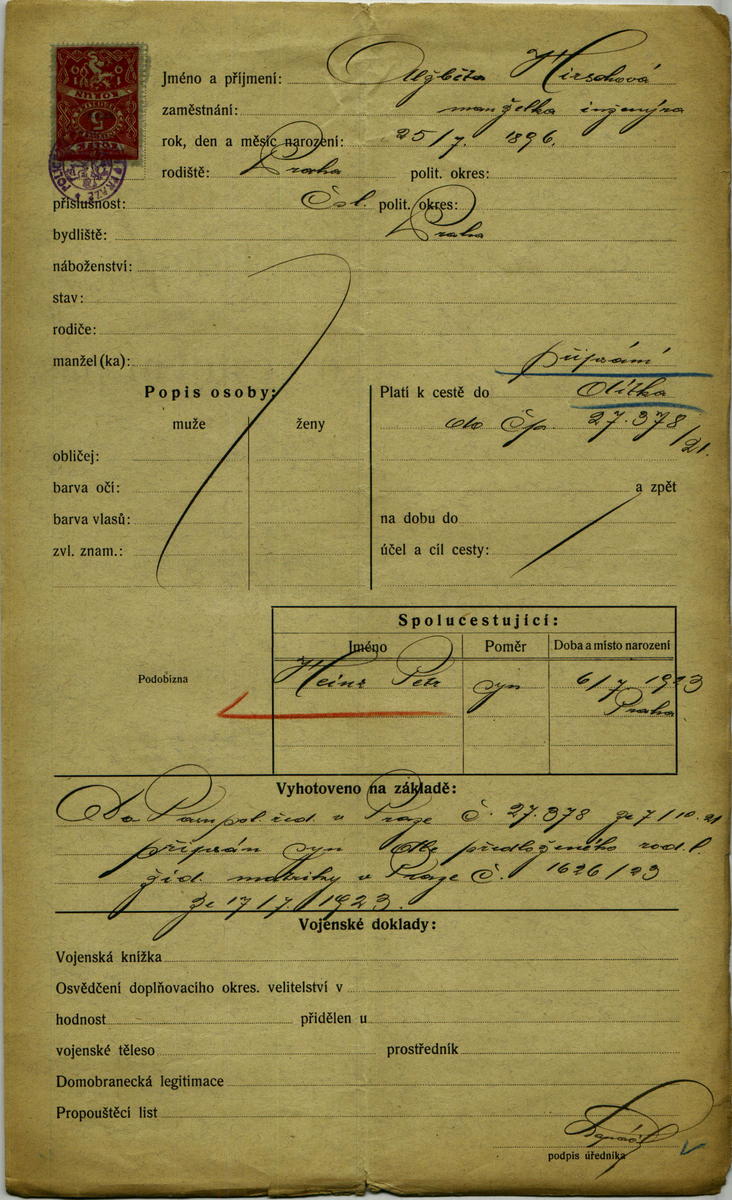 Jméno a příjmení: Alžběta Hirschová
zaměstnání: manželka inženýra
rok, den a měsíc narození: 25/7. 1896.
rodiště: Praha polit. okres:
příslušnost: Čsl. polit. okres:
bydliště: Praha
náboženství:
stav:
rodiče:
manžel(ka):
připsání
Popis osoby:
muže ženy
obličej:
barva očí:
barva vlasů:
zvl. znam.:
Platí k cestě do dítka
do Čp. 27.378
/21.
a zpět
na dobu do
účel a cíl cesty:
Spolucestující:
Jméno Poměr Doba a místo narození
Podobizna
Heinz Petr syn 6/7. 1923
Praha
Vyhotoveno na základě:
Do Pasu pol. řed. v Praze č. 27.378 ze 7/10.21
připsán syn dle předloženého rod. l.
žid. matriky v Praze č. 1626/23
ze 17/7. 1923.
Vojenské doklady:
Vojenská knížka
Osvědčení doplňovacího okres. velitelství v
hodnost přidělen u
vojenské těleso prostředník
Domobranecká legitimace
Propouštěcí list
podpis úředníka